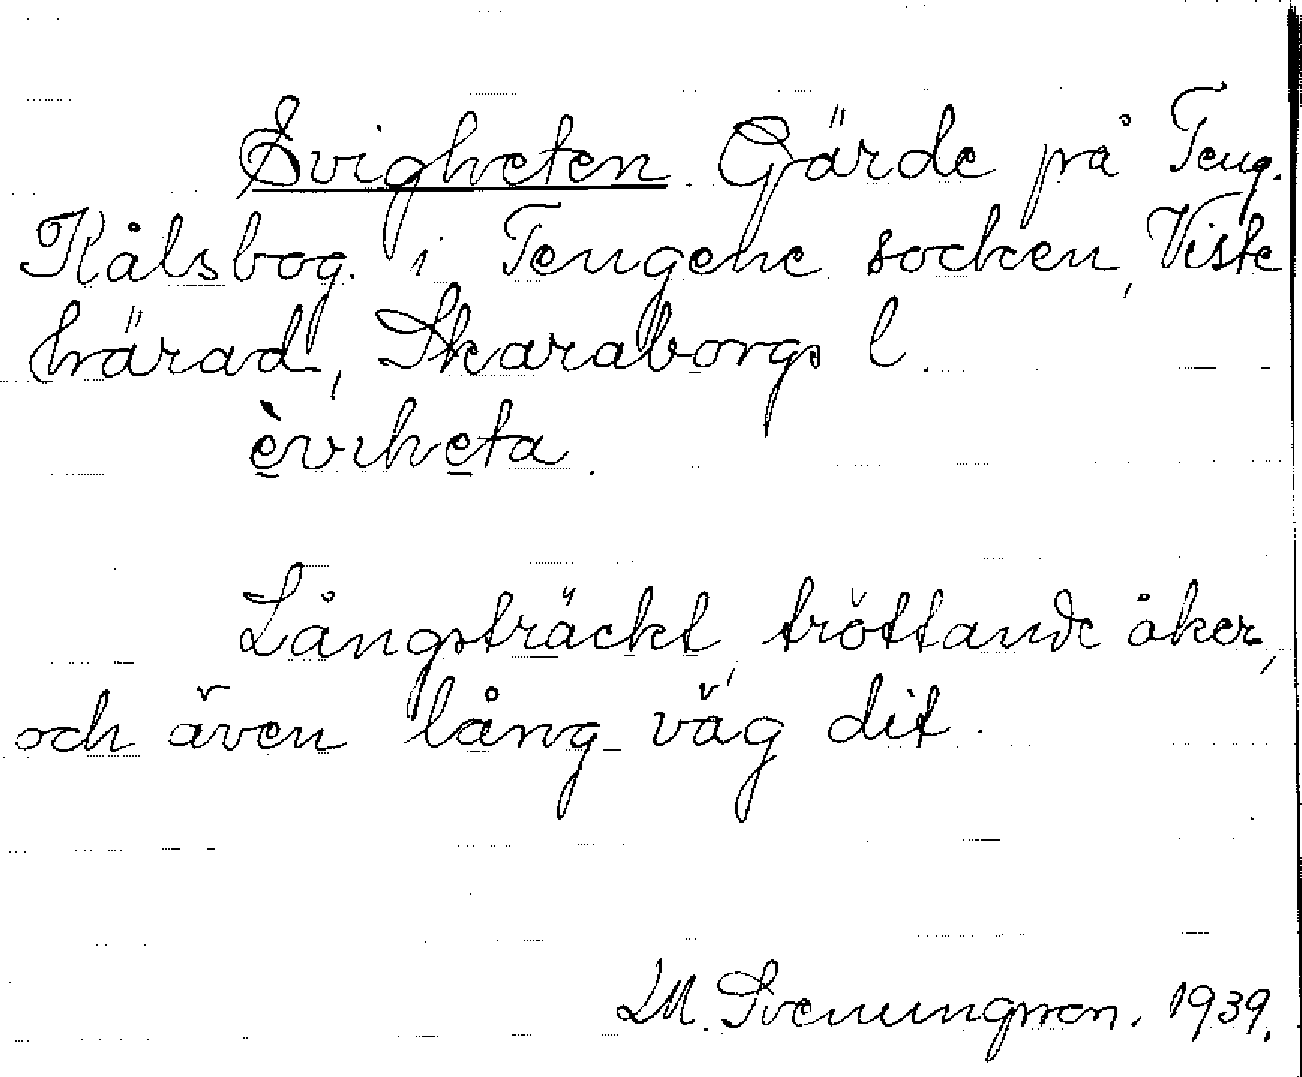 Evigheten. Gärde på Teng.
Kålsbog. i Tengene socken, Viste
härad, Skaraborgs l.
èviheta.
Långsträckt, tröttande åker,
och även lång väg dit.
M. Svenungsson. 1939.